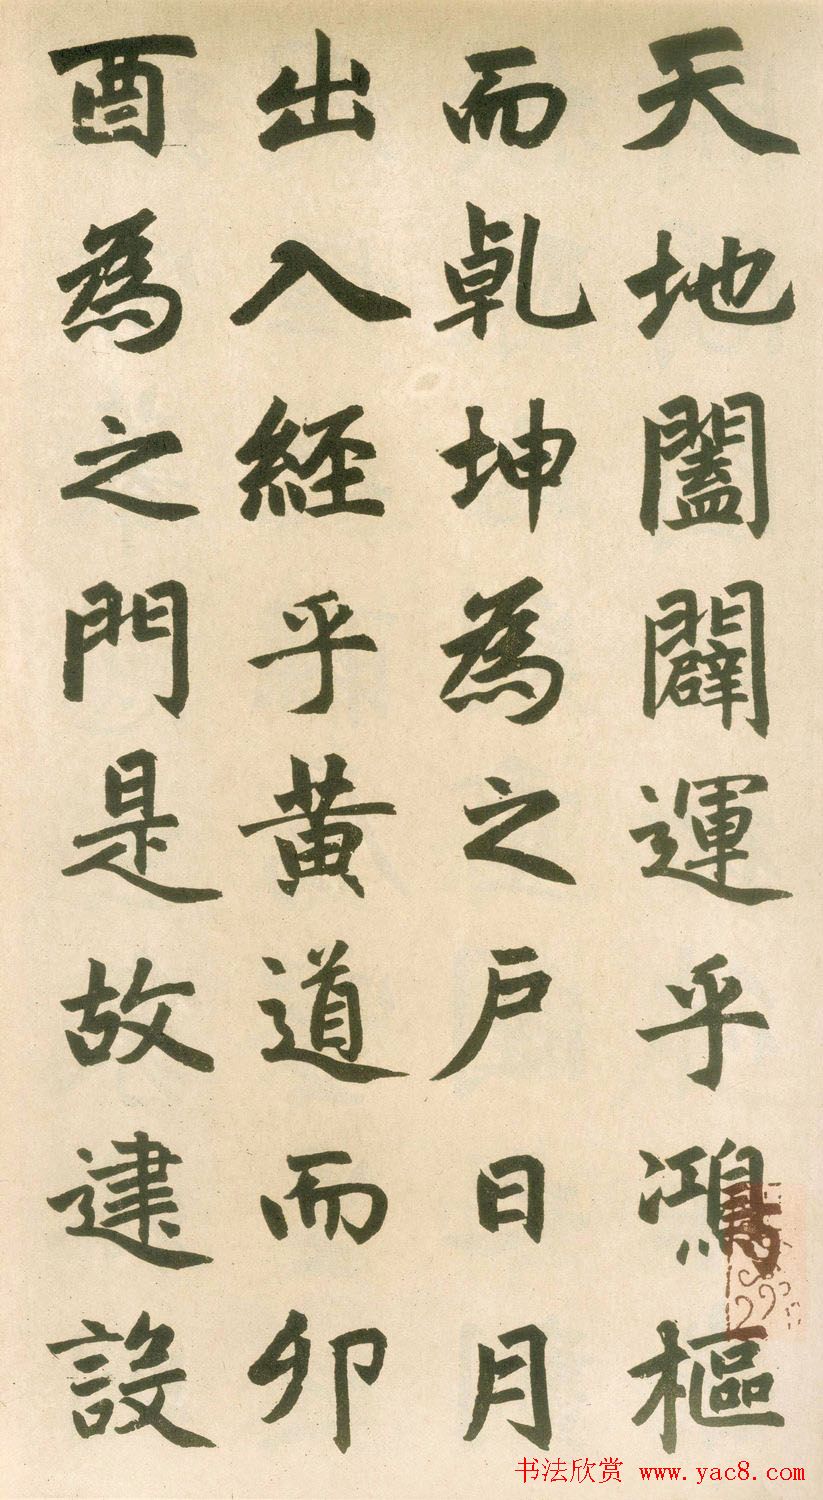 天地闔闢運乎鴻樞
而乹坤為之户日月
出入經乎黃道而卯
酉為之門是故建設
书法欣赏 www.yac8.com